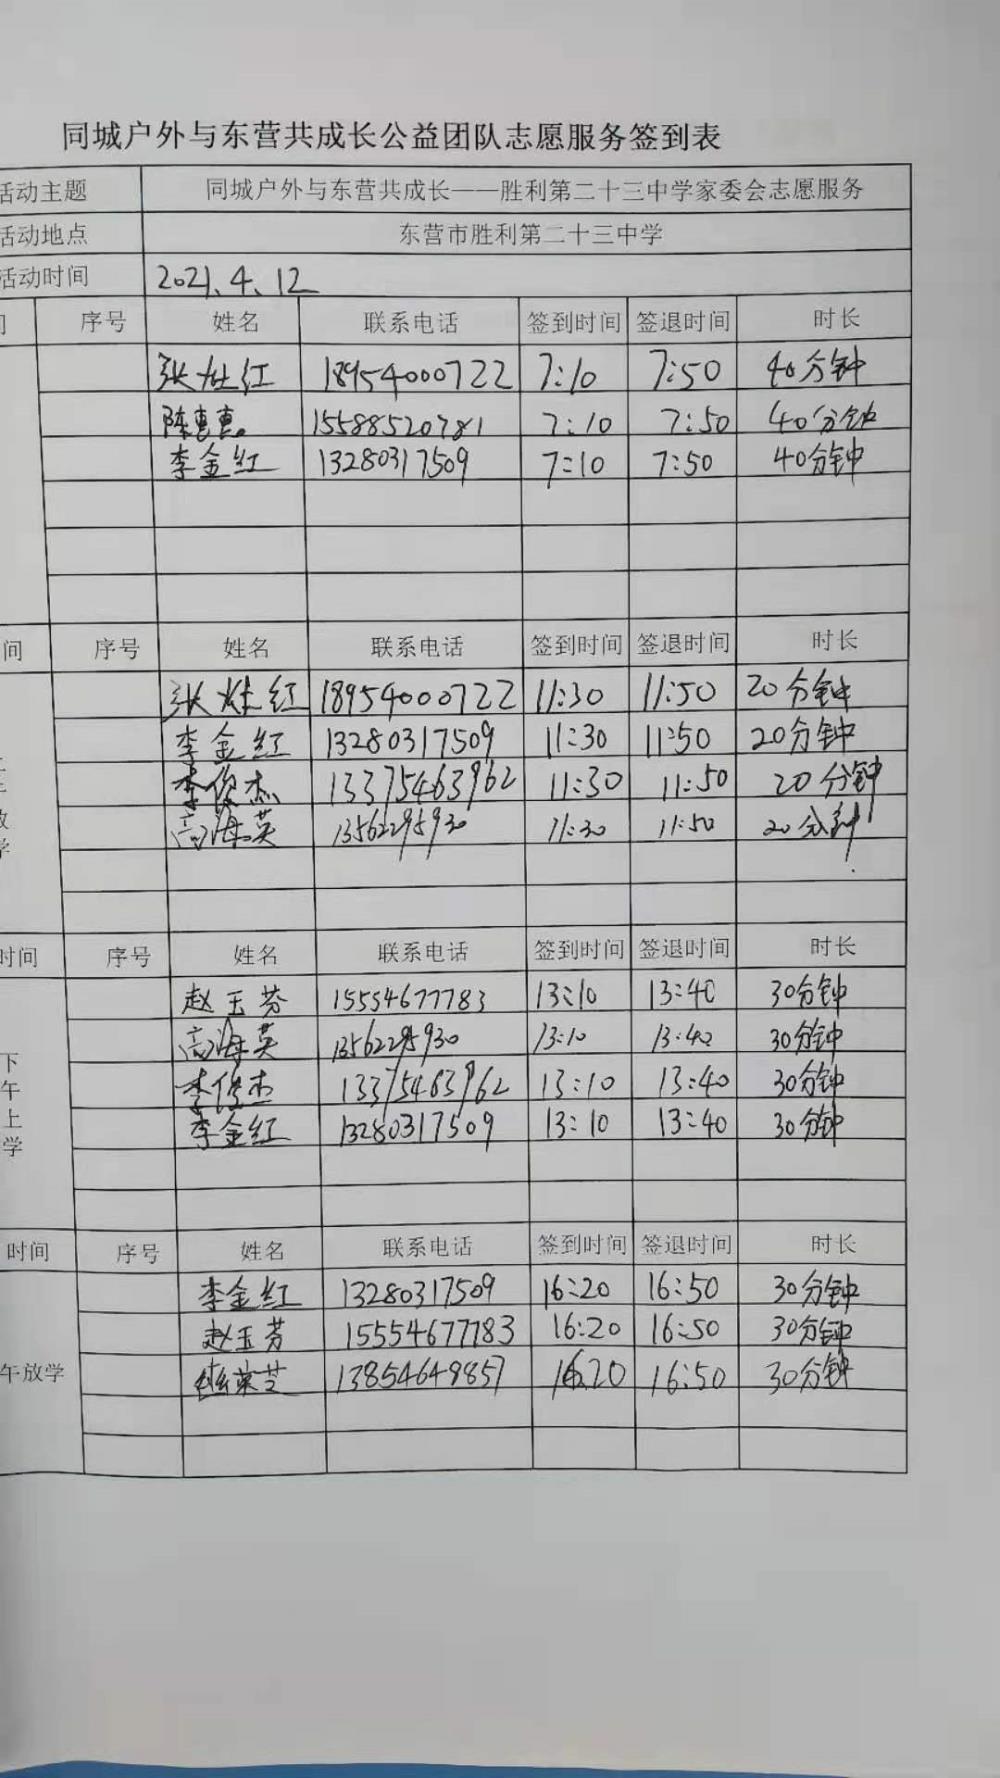 同城户外与东营共成长公益团队志愿服务签到表
活动主题 同城户外与东营共成长——胜利第二十三中学家委会志愿服务
活动地点 东营市胜利第二十三中学
活动时间 2021.4.12
间 序号 姓名 联系电话 签到时间 签退时间 时长
张 红 18954000722 7:10 7:50 40分钟
陈惠惠 15588520781 7:10 7:50 40分钟
李金红 13280317509 7:10 7:50 40分钟
间 序号 姓名 联系电话 签到时间 签退时间 时长
张 红 18954000722 11:30 11:50 20分钟
李金红 13280317509 11:30 11:50 20分钟
李俊杰 13375463962 11:30 11:50 20分钟
高海英 13562295930 11:30 11:50 20分钟
学
时间 序号 姓名 联系电话 签到时间 签退时间 时长
赵玉芬 15554677783 13:10 13:40 30分钟
高海英 13562295930 13:10 13:40 30分钟
下午上学
李俊杰 13375463962 13:10 13:40 30分钟
李金红 13280317509 13:10 13:40 30分钟
时间 序号 姓名 联系电话 签到时间 签退时间 时长
李金红 13280317509 16:20 16:50 30分钟
赵玉芬 15554677783 16:20 16:50 30分钟
午放学 13854649857 16:20 16:50 30分钟